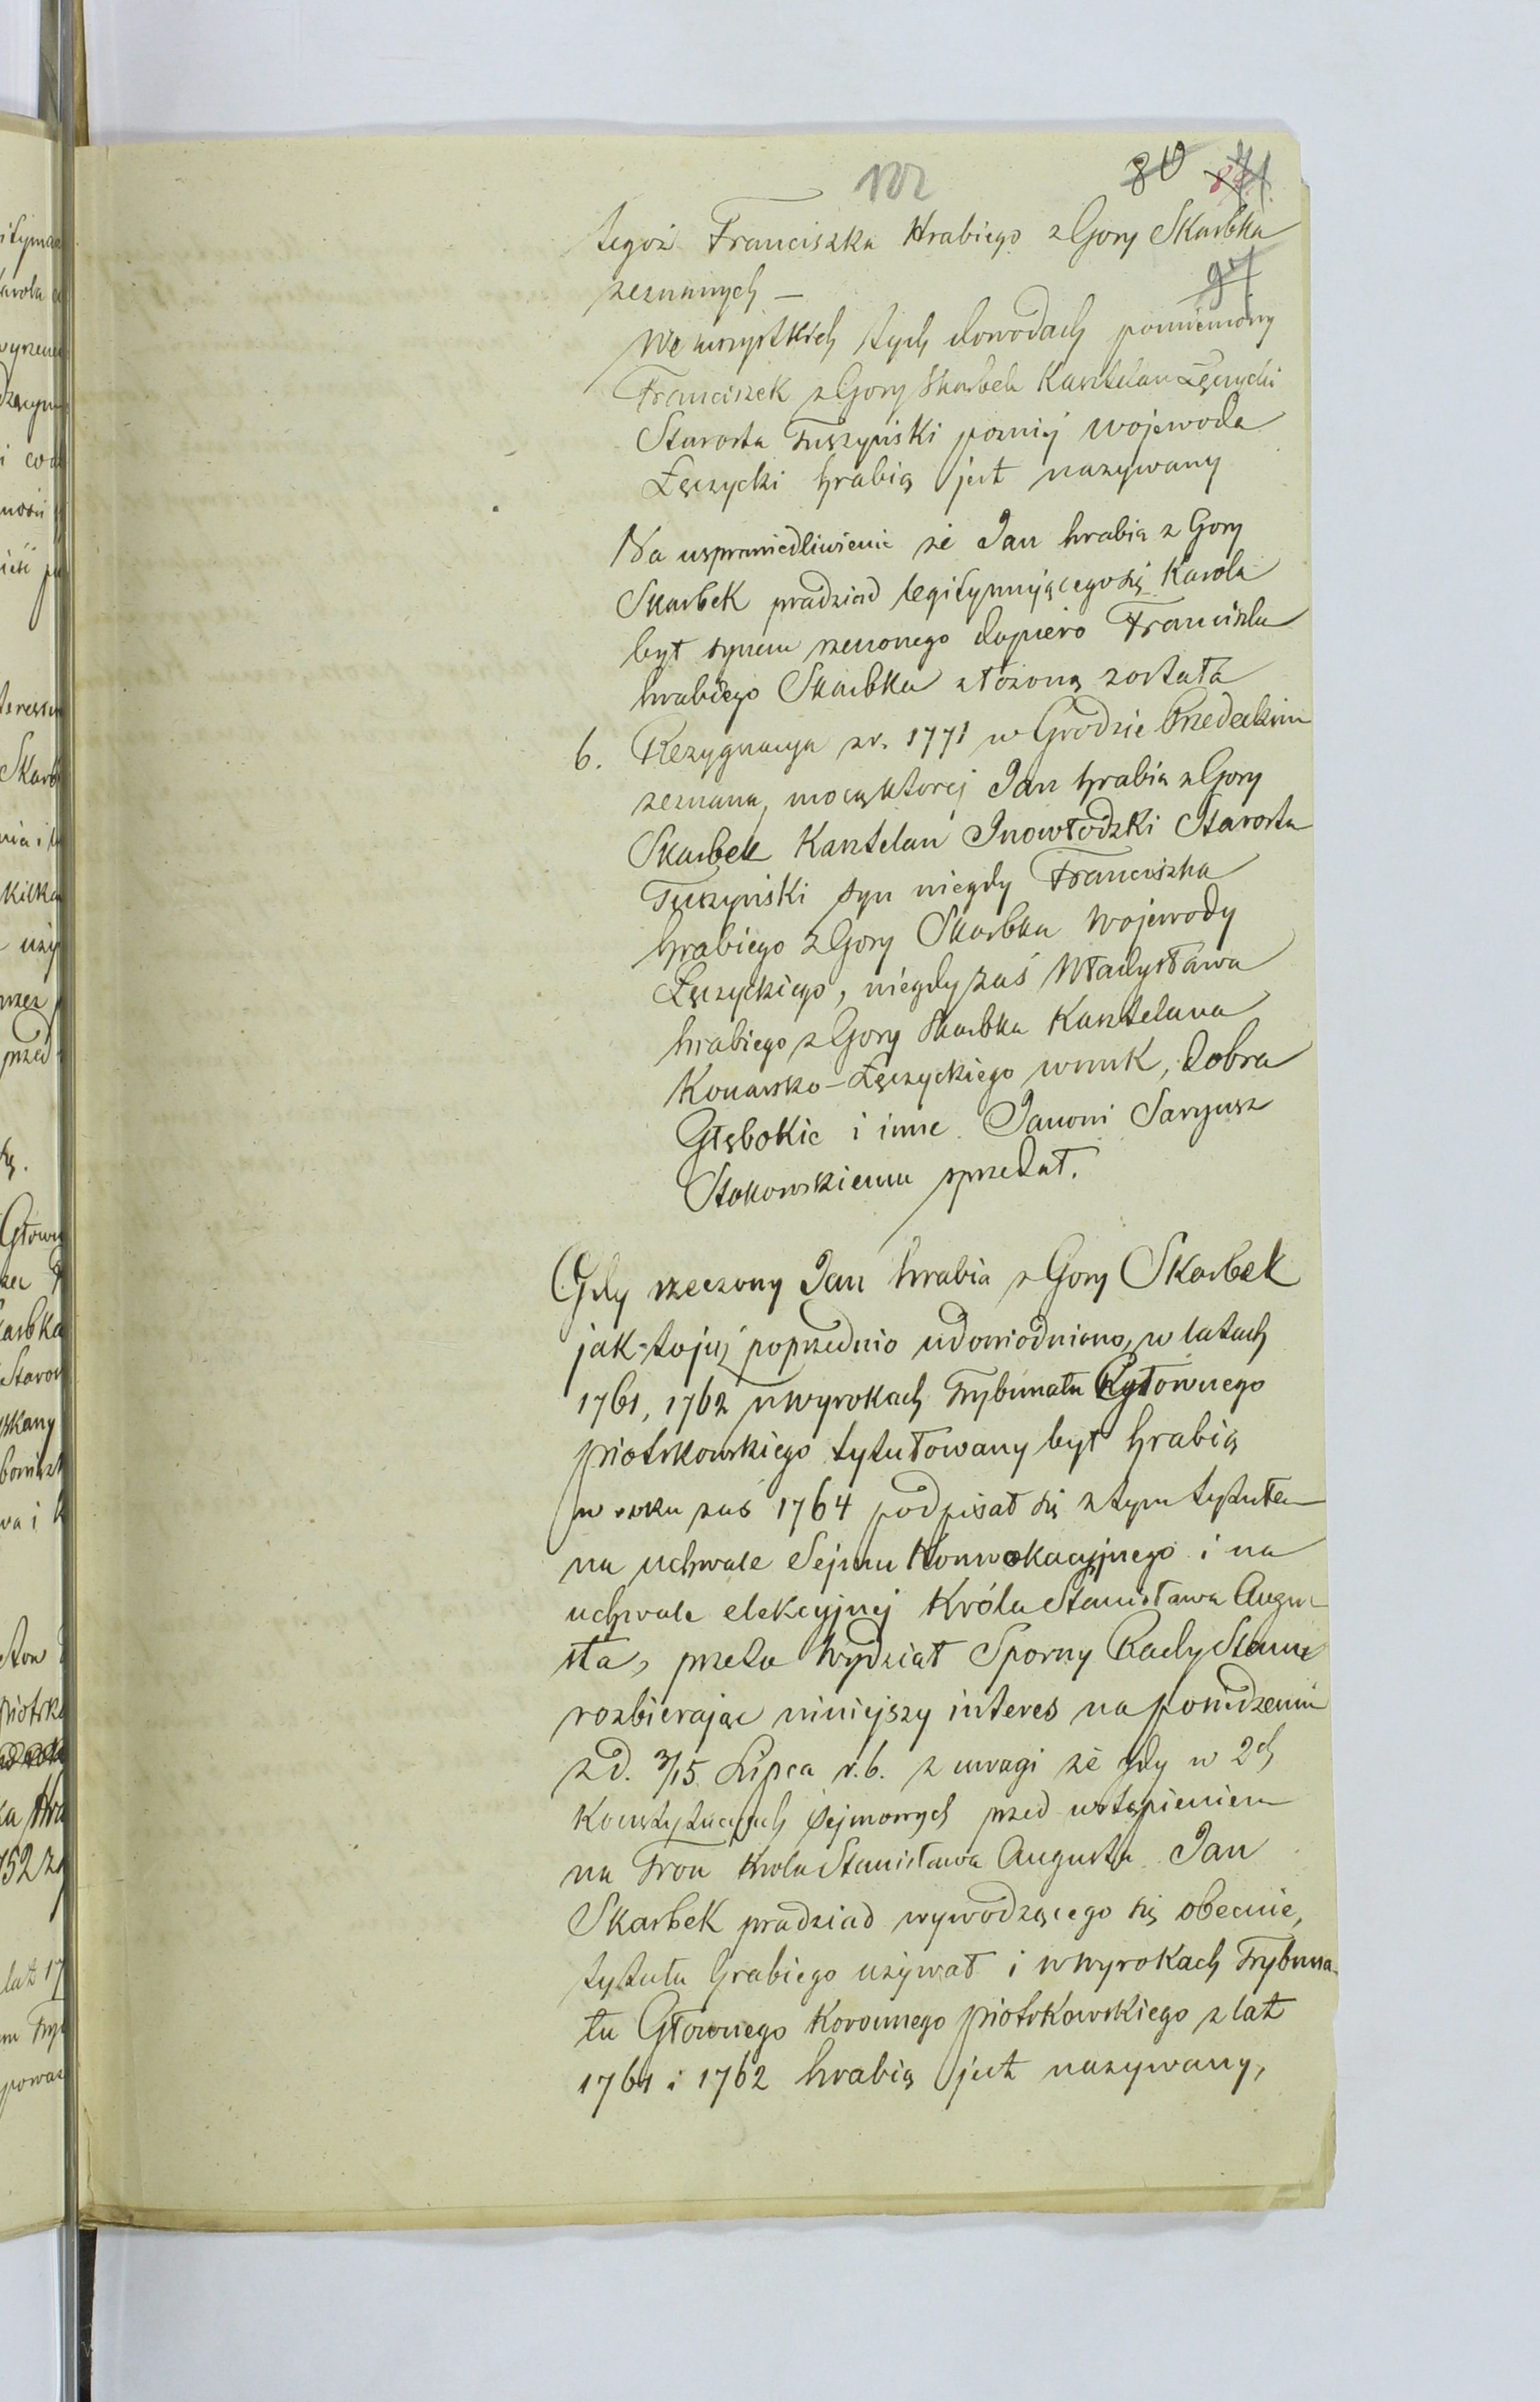 102 80
tegoż Franciszka Hrabiego z Gory Skarbka
zeznanych —
We wszystkich tych dowodach pomieniony
Franciszek z Gory Skarbek Kasztelan Łęczycki
Starosta Tuszyński pozniej wojewoda
Łęczycki hrabią jest nazywany
Na usprawiedliwienie że Jan hrabia z Gory
Skarbek pradziad legitymującego się Karola
był synem rzeczonego dopiero Franciszka
hrabiego Skarbka złożoną została
6. Rezygnacya z r. 1771 w Grodzie Przedeckim
zeznana, mocą ktorej Jan hrabia z Gory
Skarbek Kasztelan Inowłodzki Starosta
Tuszyński syn niegdy Franciszka
hrabiego z Gory Skarbka Wojewody
Łęczyckiego, niegdy zaś Władysława
hrabiego z Gory Skarbka Kasztelana
Konarsko-Łęczyckiego wnuk, dobra
Głębokie i inne Janowi Saryusz
Stokowskiemu sprzedał.
Gdy rzeczony Jan hrabia z Gory Skarbek
jak to już poprzednio udowodniono, w latach
1761, 1762 w wyrokach Trybunału Głownego
piotrkowskiego tytułowany był hrabią
w roku zaś 1764 podpisał się z tym tytułem
na uchwale Sejmu Konwokacyjnego i na
uchwale elekcyjnej Króla Stanisława Augu-
sta, przeto Wydział Sporny Rady Stanu
rozbierając niniejszy interes na posiedzeniu
z d. 3/15 Lipca r. b. z uwagi że gdy w 2ch
Konstytucyach sejmowych przed wstąpieniem
na Tron Krola Stanisława Augusta Jan
Skarbek pradziad wywodzącego się obecnie,
tytułu hrabiego używał i w wyrokach Trybuna-
łu Głownego Koronnego piotrkowskiego z lat
1761 i 1762 hrabią jest nazywany,